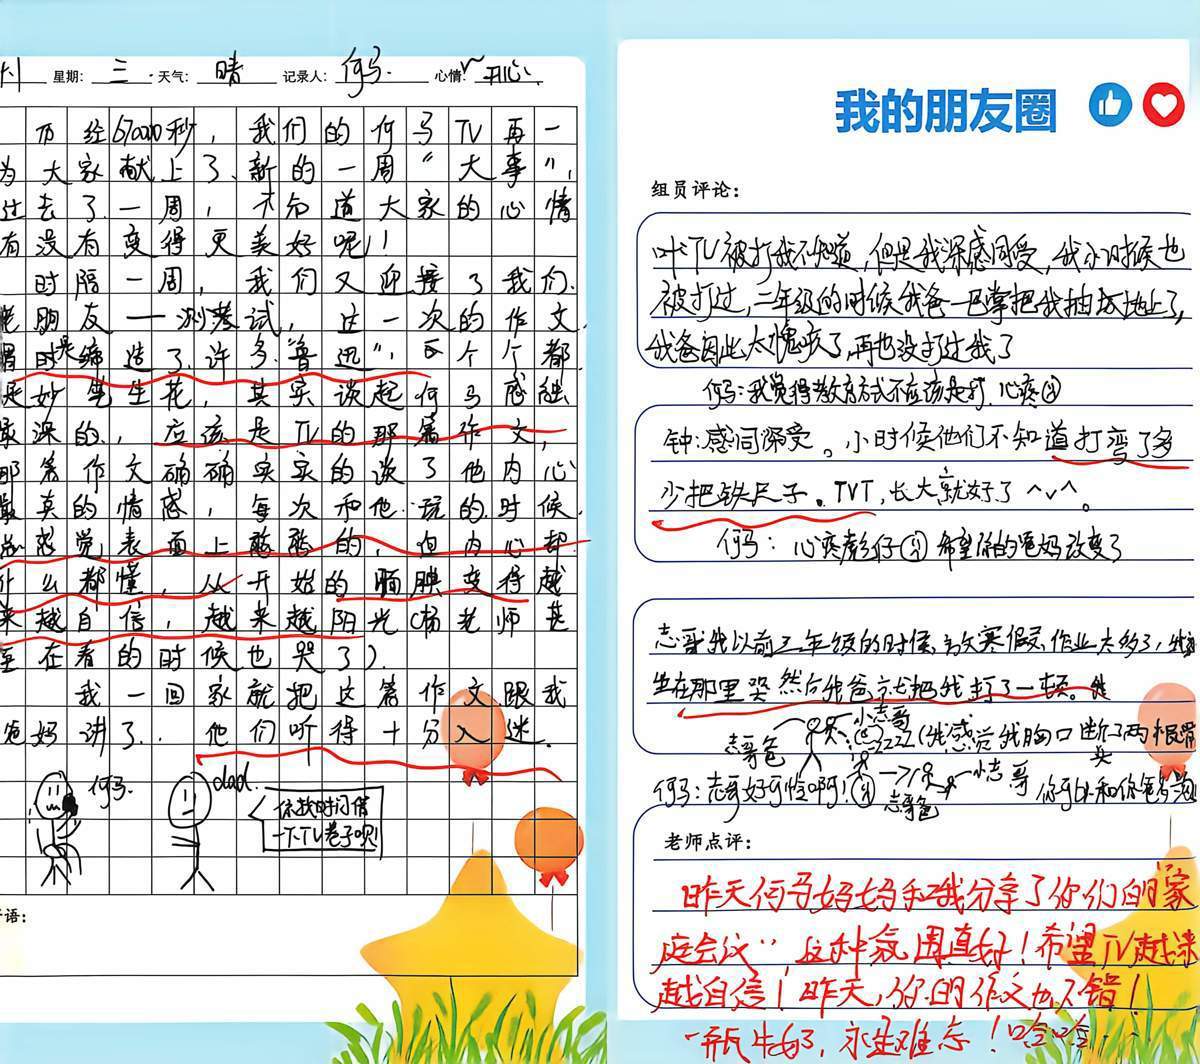 星期：三 天气：晴 记录人：何马 心情：开心
历经67000秒，我们的何马TV再一
为大家献上了新的一周“大事”，
过去了一周，不知道大家的心情
有没有变得更美好呢！
时隔一周，我们又迎接了我们
老朋友——测考试，这一次的作文
时是缔造了许多“鲁迅”，个个都
是妙笔生花，其实谈起何马感触
最深的，应该是TV的那篇作文，
那篇作文确确实实的谈了他内心
最真的情感，每次和他玩的时候
总感觉表面上憨憨的，但内心却
什么都懂，从开始的腼腆变得越
来越自信，越来越阳光（杨老师甚
至在看的时候也哭了）。
我一回家就把这篇作文跟我
爸妈讲了，他们听得十分入迷。
何马
dad
你找时间借
一下TV卷子呗！
语：
我的朋友圈
组员评论：
叶：TV被打我不知道，但是我深感同受，我小时候也
被打过，二年级的时候我爸一巴掌把我抽地上了，
我爸因此太愧疚了，再也没打过我了
何马：我觉得教育方式不应该是打，心疼
钟：感同深受。小时候他们不知道打弯了多
少把铁尺子。TVT，长大就好了^v^。
何马：心疼彪仔 希望你的爸妈改变了
志哥：我以前三年级的时候，语文寒假作业太多了，我
坐在那里哭 然后我爸就把我打了一顿。
小志哥
志哥爸
（我感觉我胸口断了两根骨
头
何马：志哥好可怜啊！
小志哥
志哥爸
你可以和你爸
老师点评：
昨天何马妈妈和我分享了你们的“家
庭会议”，这种氛围真好！希望TV越来
越自信！昨天，你的作文也不错！
一瓶牛奶，永生难忘！哈哈